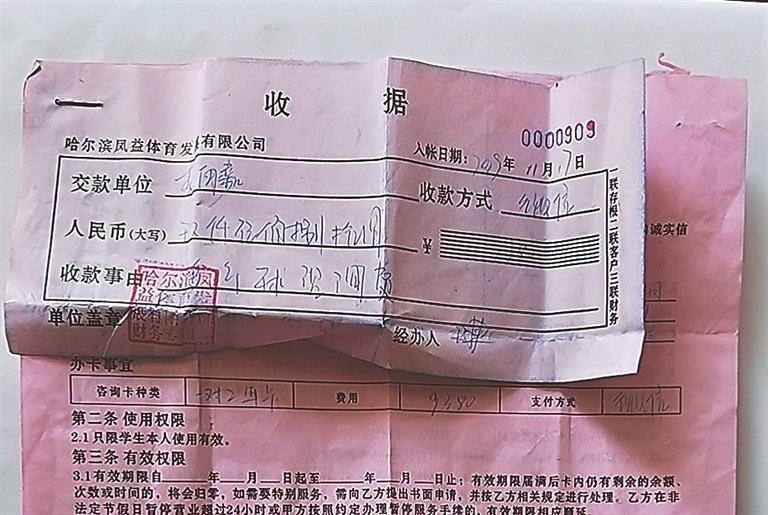 收 据
0000909
哈尔滨凤益体育发 有限公司
入帐日期: 年 11 月 17 日
交款单位 收款方式
人民币(大写) ¥
收款事由 球 费
哈尔滨凤
单位盖章
财务
经办人
一联存根 二联客户 三联财务
诚实信
办卡事宜
咨询卡种类 费用 9380 支付方式 微信
第二条 使用权限
2.1 只限学生本人使用有效。
第三条 有效权限
3.1 有效期限自 年 月 日起至 年 月 日止; 有效期限届满后卡内仍有剩余的余额、
次数或时间的, 将会归零, 如需要特别服务, 需向乙方提出书面申请, 并按乙方相关规定进行处理。乙方在非
法定节假日暂停营业超过24小时或甲方按照约定办理暂停服务手续的, 有效期限相应顺延。